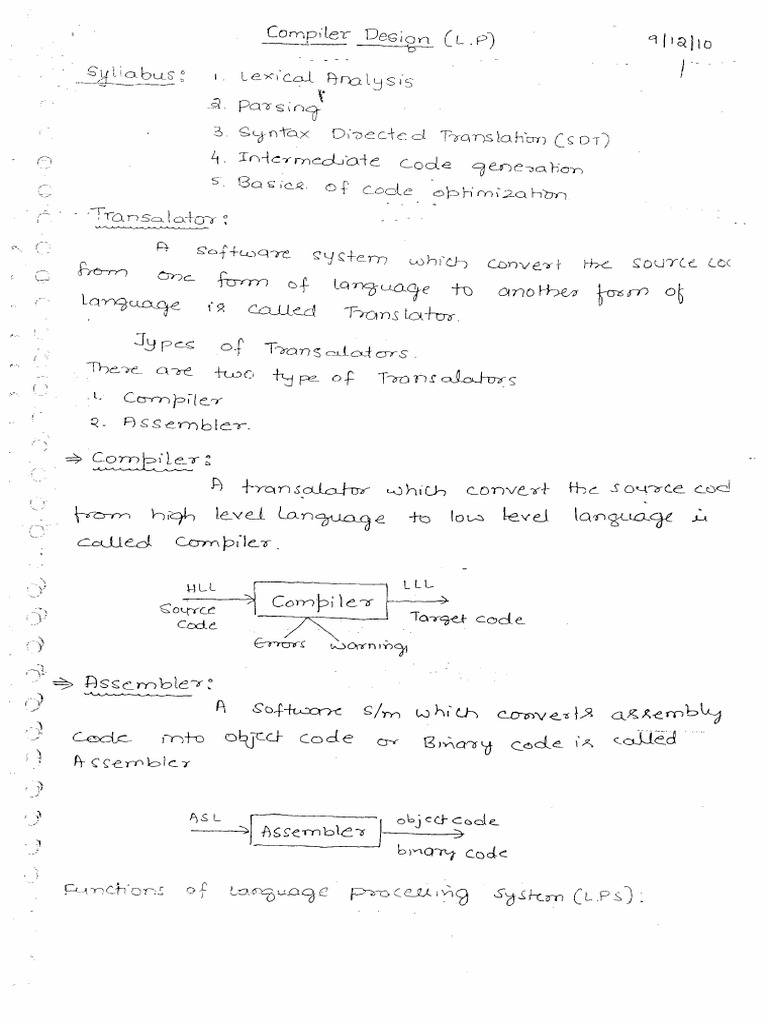 Compiler Design (L.P)
9/12/10
1
Syllabus: 1. Lexical Analysis
2. Parsing
3. Syntax Directed Translation (SDT)
4. Intermediate code generation
5. Basics of code optimization
Transalator:
A software system which convert the source coc
from one form of language to another form of
language is called Translator.
Types of Transalators.
There are two type of Transalators
1. Compiler
2. Assembler.
⇒ Compiler:
A transalator which convert the source cod
from high level language to low level language is
called Compiler.
HLL
Source
Code
Compiler
LLL
Target code
Errors warnings
⇒ Assembler:
A software s/m which converts assembly
code into object code or Binary code is called
Assembler
ASL
Assembler
object code
binary code
Functions of Language processing System (LPS):